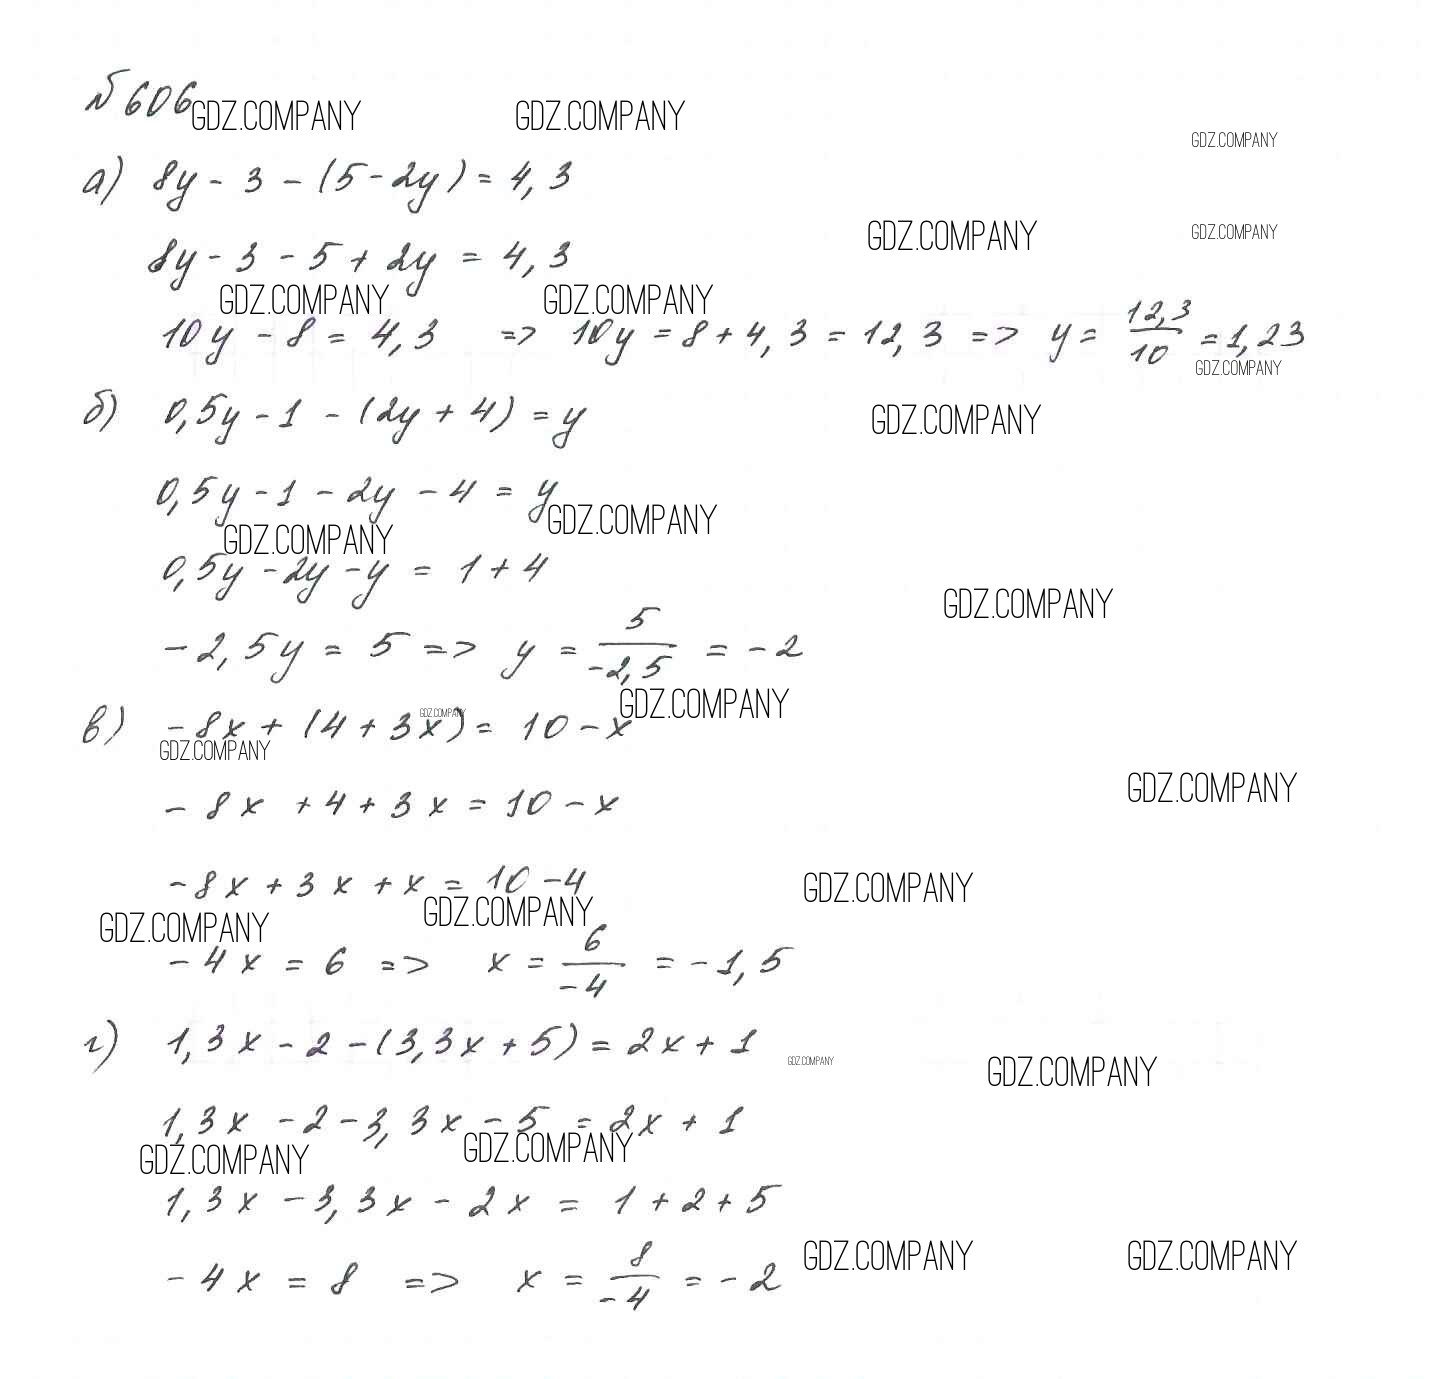 № 606
GDZ.COMPANY GDZ.COMPANY
GDZ.COMPANY
а) 8y - 3 - (5 - 2y) = 4,3
GDZ.COMPANY GDZ.COMPANY
8y - 3 - 5 + 2y = 4,3
GDZ.COMPANY GDZ.COMPANY
10y - 8 = 4,3 => 10y = 8 + 4,3 = 12,3 => y = 12,3/10 = 1,23
GDZ.COMPANY
б) 0,5y - 1 - (2y + 4) = y
GDZ.COMPANY
0,5y - 1 - 2y - 4 = y
GDZ.COMPANY
GDZ.COMPANY
0,5y - 2y - y = 1 + 4
GDZ.COMPANY
-2,5y = 5 => y = 5/-2,5 = -2
GDZ.COMPANY
GDZ.COMPANY
в) -8x + (4 + 3x) = 10 - x
GDZ.COMPANY
GDZ.COMPANY
-8x + 4 + 3x = 10 - x
-8x + 3x + x = 10 - 4
GDZ.COMPANY
GDZ.COMPANY GDZ.COMPANY
-4x = 6 => x = 6/-4 = -1,5
г) 1,3x - 2 - (3,3x + 5) = 2x + 1
GDZ.COMPANY
GDZ.COMPANY
1,3x - 2 - 3,3x - 5 = 2x + 1
GDZ.COMPANY GDZ.COMPANY
1,3x - 3,3x - 2x = 1 + 2 + 5
GDZ.COMPANY GDZ.COMPANY
-4x = 8 => x = 8/-4 = -2